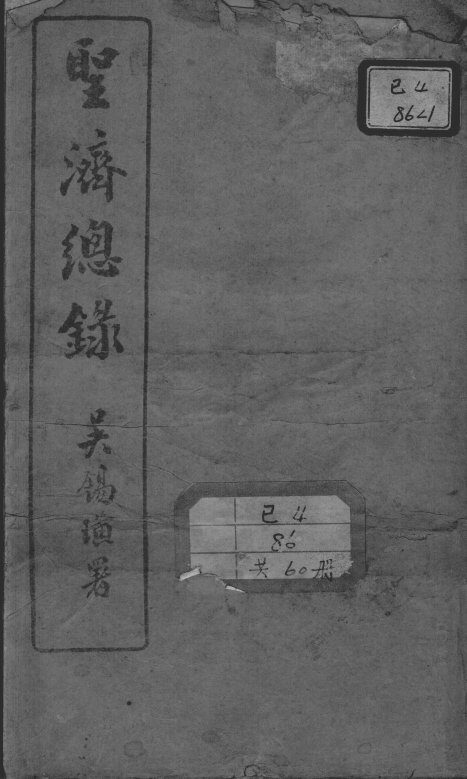 聖濟總錄
吳錫璜署
已4
86<1
已4
86
共60册